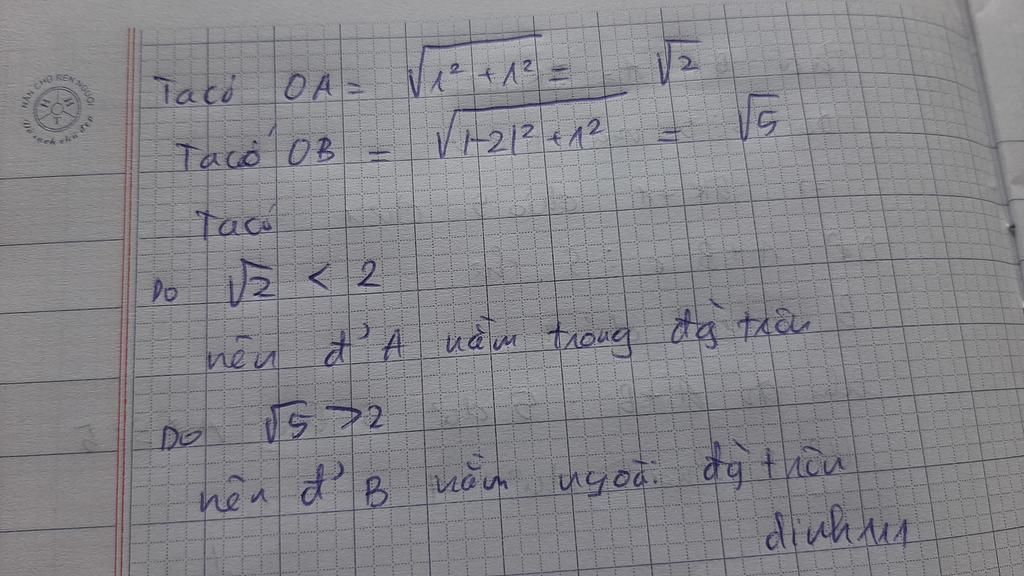 Ta có OA = √1² + 1² = √2
Ta có OB = √|-2|² + 1² = √5
Ta có
Do √2 < 2
nên đ' A nằm trong đg` tròn
Do √5 > 2
nên đ' B nằm ngoài đg` tròn